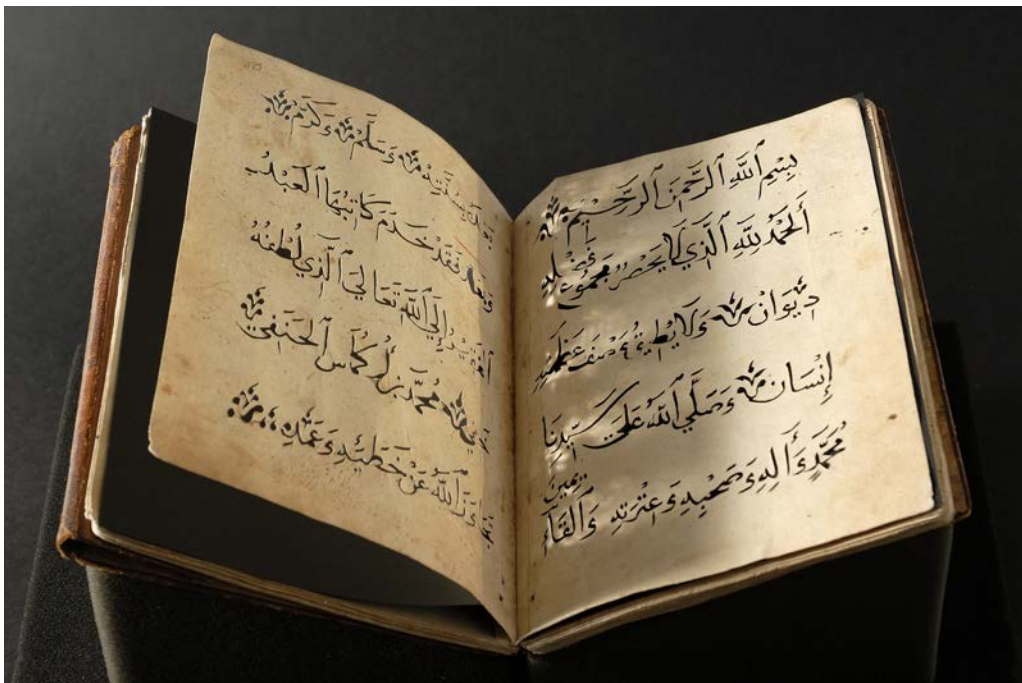 بِسْمِ ٱللَّهِ ٱلرَّحْمَنِ ٱلرَّحِيْمِ
أَلْحَمْدُ لِلَّهِ ٱلَّذِي لَا يَحْصُرُ مَجْمُوعَ فَضْلِهِ
دِيْوَانْ وَلَا يُطِيقُ وَصْفَ عَظَمَتِهِ
إِنْسَانْ وَصَلَّي ٱللَّهُ عَلَي سَيِّدِنَا
مُحَمَّدٍ وَأَلِهِ وَصَحْبِهِ وَعِتْرَتِهِ وَٱلْقَآئِمِينَ
بِسُنَّتِهِ وَسَلَّمْ وَكَرَّمْ
وَبَعْدُ فَقَدْ خَدَمَ كَاتِبُهَا ٱلْعَبْدُ
ٱلْفَقِيرُ إِلَي ٱللَّهِ تَعَالَي ٱلَّذِي لُطْفُهُ
مُحَمَّدُ بْنُ كُمَاسِ ٱلْحَنَفِيِّ
ٱللَّهُ عَنْ خَطَئِهِ وَعَمْدِهِ